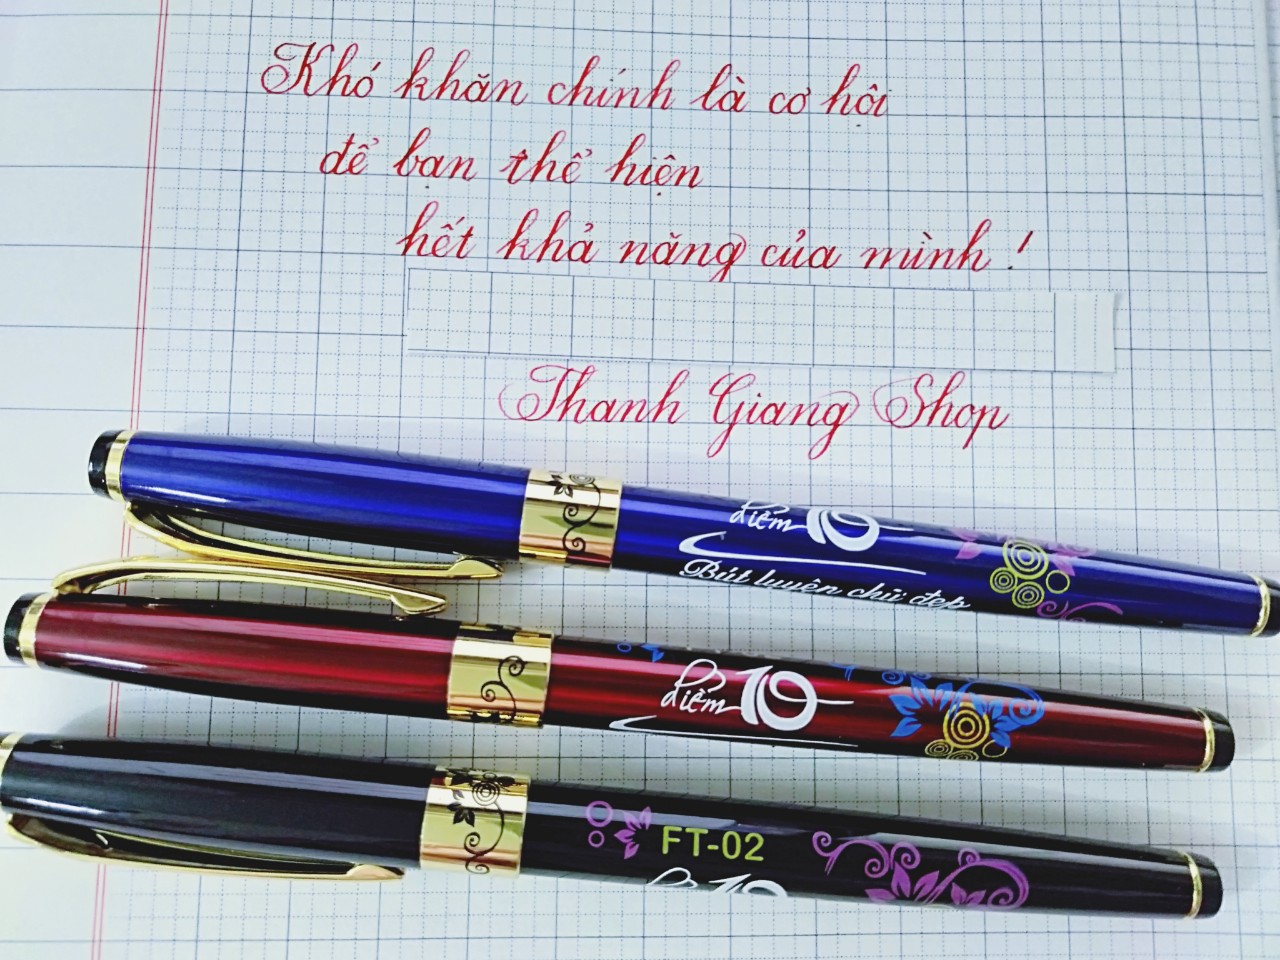 Khó khăn chính là cơ hội
để bạn thể hiện
hết khả năng của mình !
Thanh Giang Shop
điểm 10
Bút luyện chữ đẹp
điểm 10
FT-02